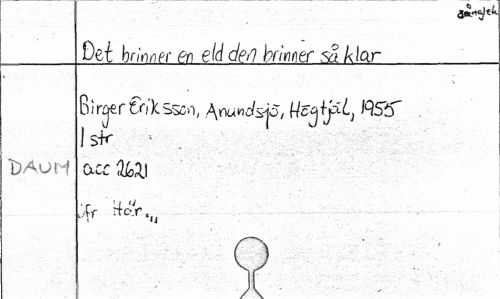 sånglek
Det brinner en eld den brinner så klar
Birger Eriksson, Anundsjö, Högtjäl, 1955
1 str
DAUM acc 2621
jfr Här...